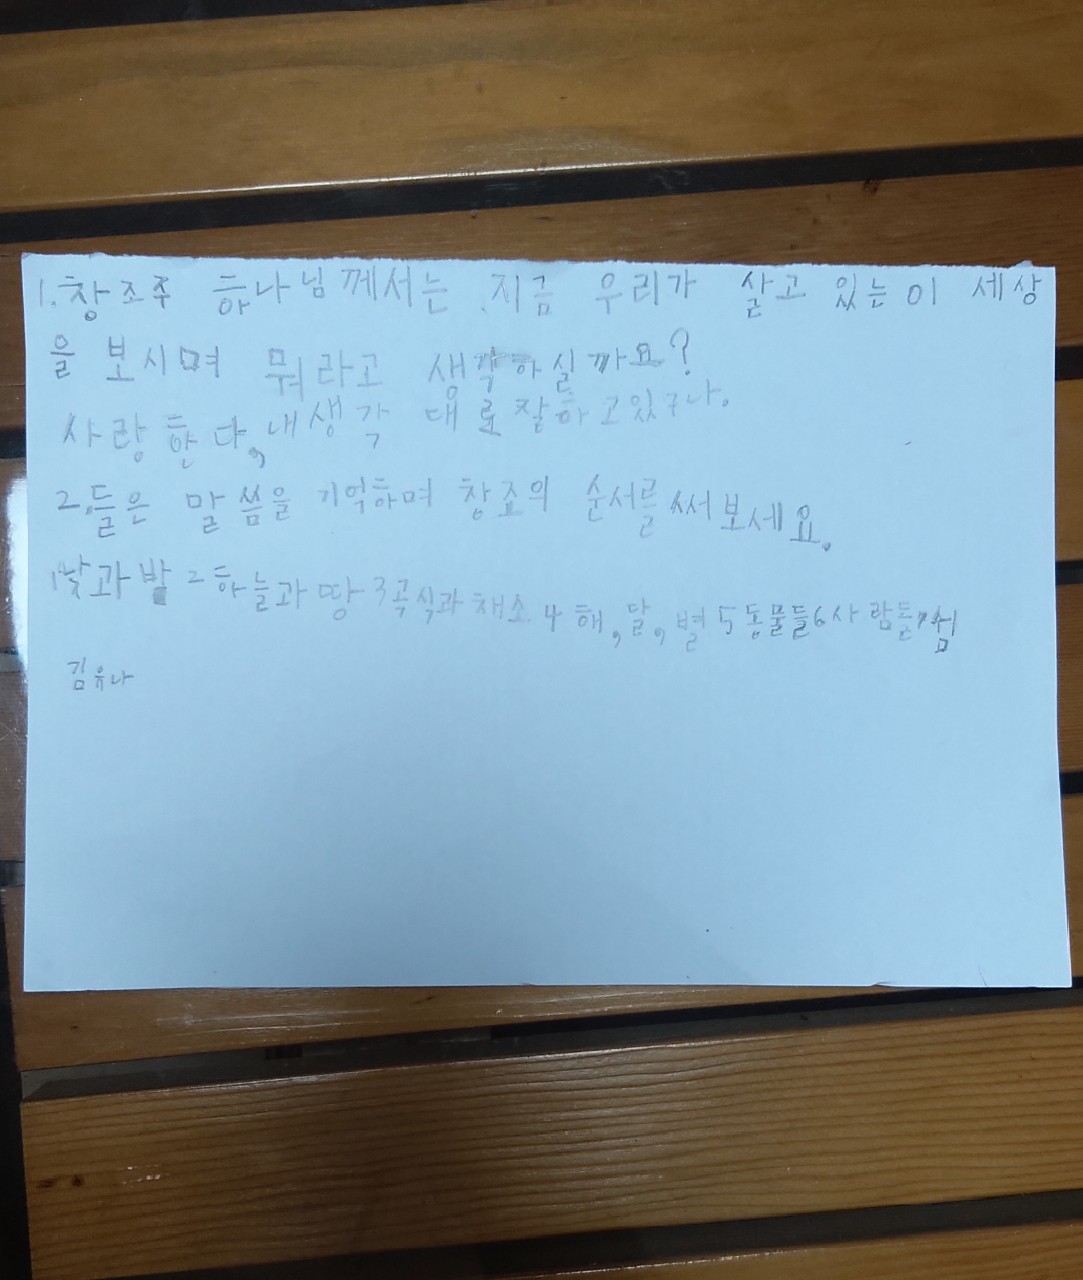 1. 창조주 하나님께서는 지금 우리가 살고 있는 이 세상
을 보시며 뭐라고 생각하실까요?
사랑한다, 내생각 대로 잘하고있구나.
2. 들은 말씀을 기억하며 창조의 순서를 써보세요.
1낮과 밤 2하늘과 땅 3곡식과 채소 4 해, 달, 별 5동물들 6사람들 7쉼
김유나